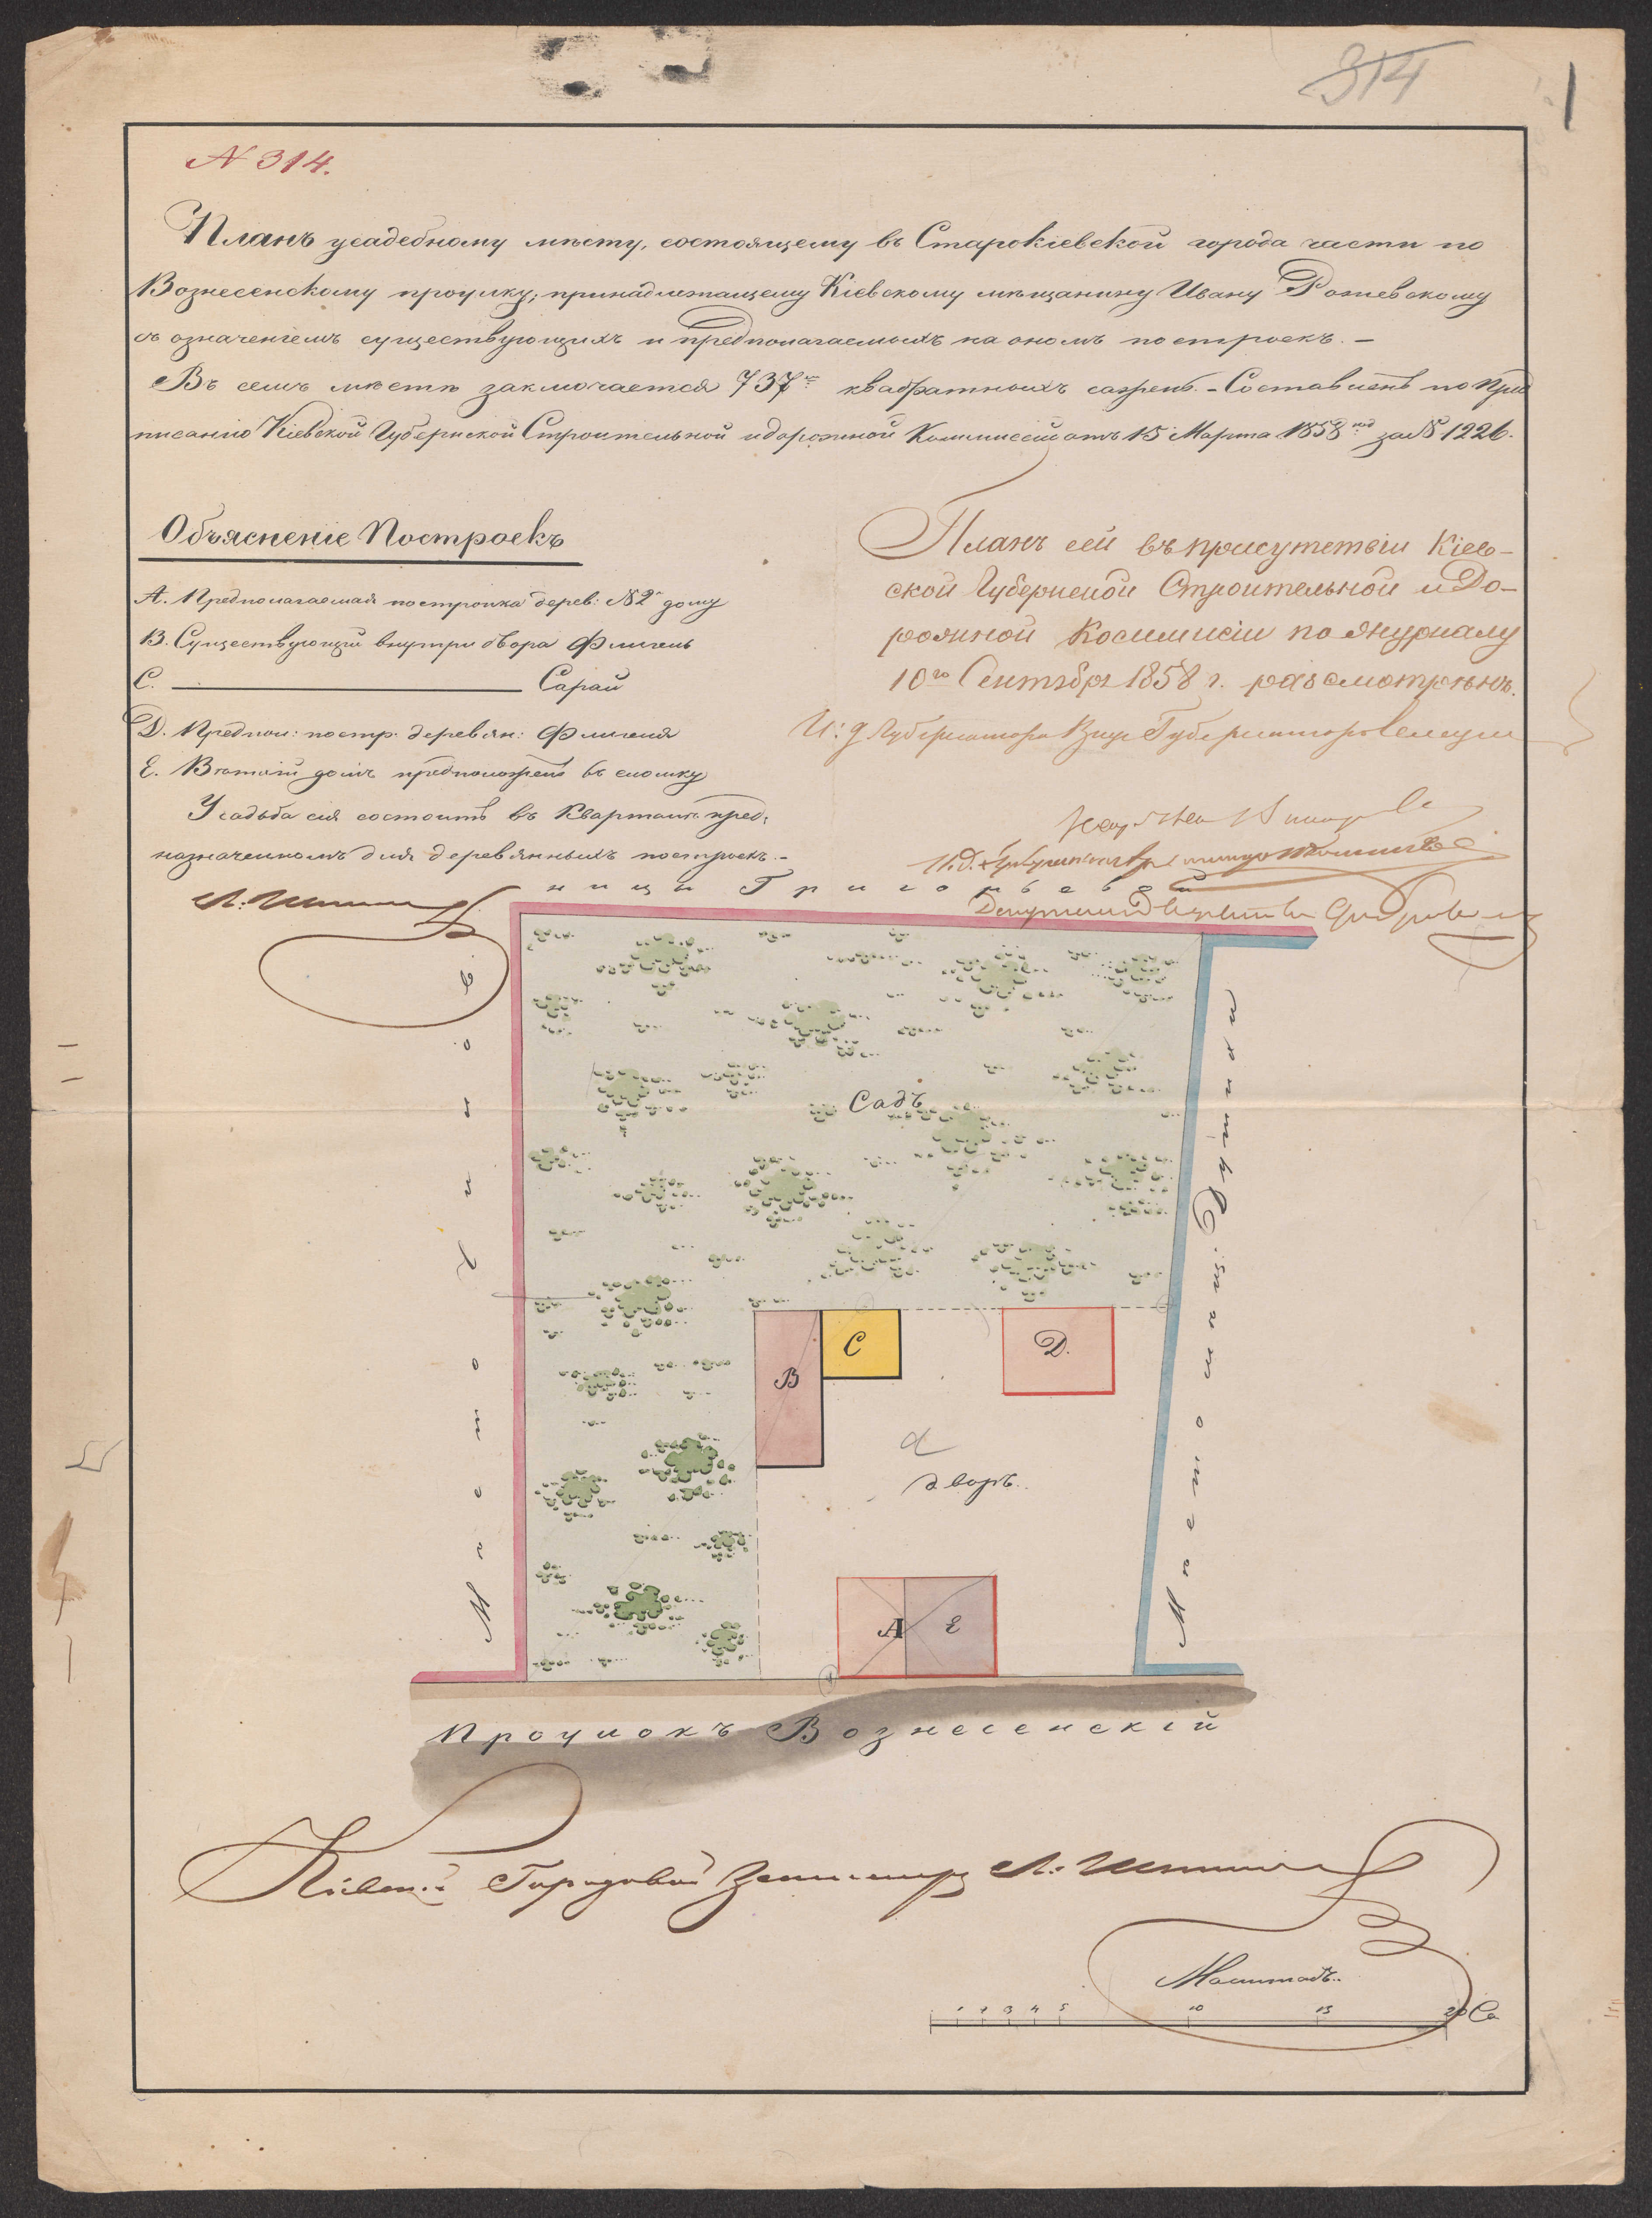 314
1
N 314.
Планъ усадебному мѣсту, состоящему въ Старокіевской города части по
Вознесенскому проулку, принадлежащему Кіевскому мѣщанину Ивану
съ означеніемъ существующихъ и предполагаемыхъ на ономъ построекъ. –
Въ семъ мѣстѣ заключается 737 квадратныхъ сажень. – Составленъ по Пред
писанію Кіевской Губернской Строительной и дорожной Коммиссіи отъ 15 Марта 1858 год за № 1226.
Объясненіе Построекъ
А. Предполагаемая постройка дерев: № 2 дому
В. Существующій внутри двора Флигель
С. Сарай
D. Предпол: постр. деревян: Флигеля
Е. Ветхій домъ предположенъ въ сломку
Усадьба сія состоитъ въ Кварталѣ пред:
назначенномъ для деревянныхъ построекъ. –
Планъ сей въ присутствіи Кіев-
ской Губернской Строительной и До-
рожной Коммисіи по журналу
10го Сентября 1858 г. разсмотрѣнъ.
И: д Губернатора Вице Губернаторъ
И. д.
ницы Григорьевой
Мѣсто
Садъ
Мѣсто
В
С
D.
дворъ.
А
Е
Проулокъ Вознесенскій
Кіевскій Городовой Землемѣръ
Масштабъ.
1 2 3 4 5 10 15 20 Са